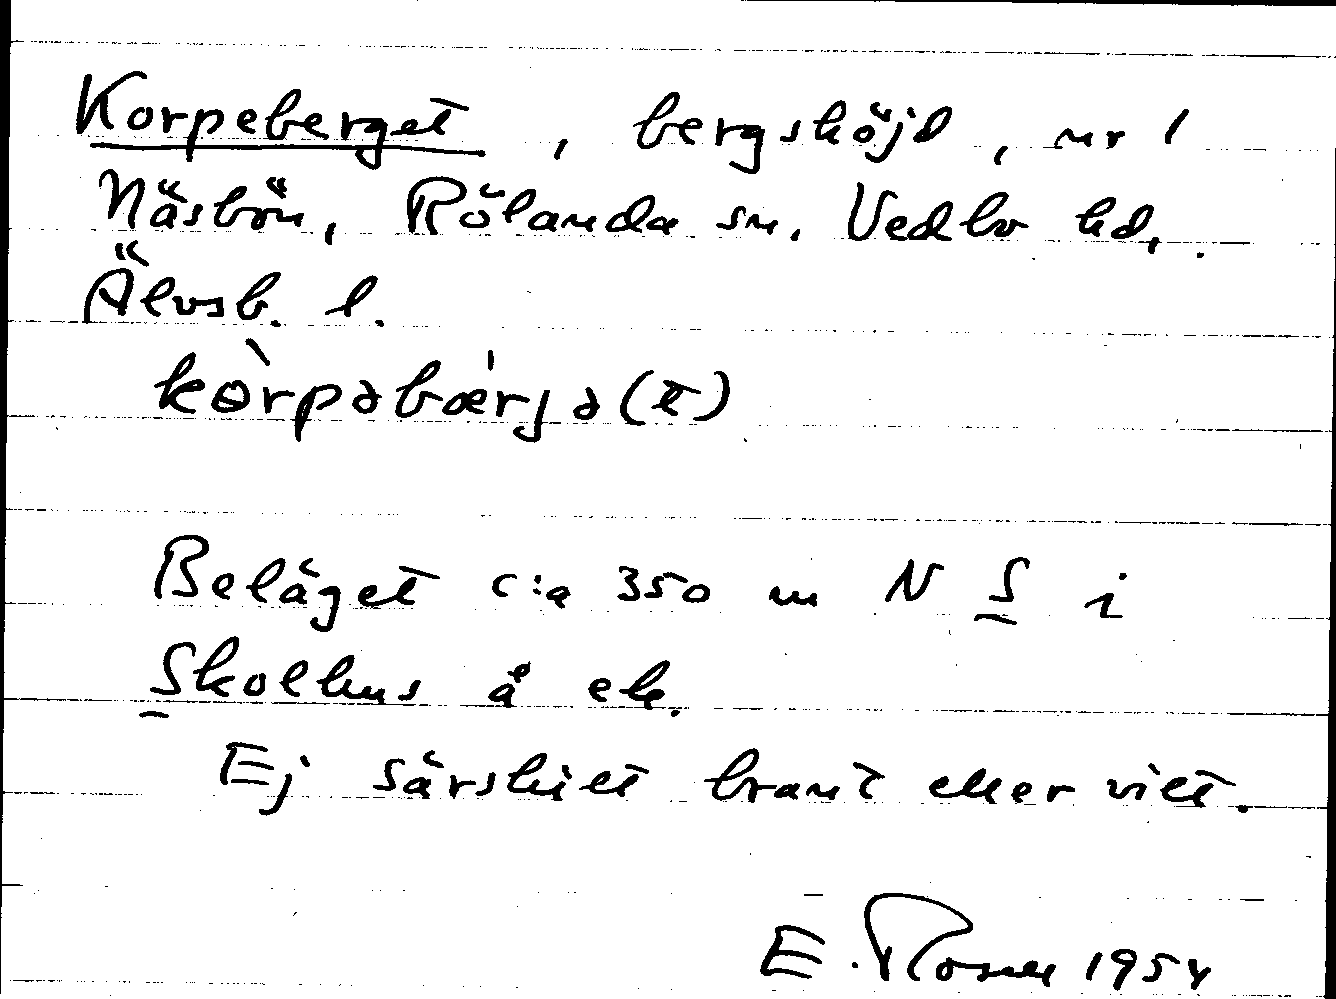 Korpeberget, bergshöjd, nr 1
Näsbön, Rölanda sn. Vedbo hd,
Älvsb. l.
kòrpəbærjə(t)
Beläget c:a 350 m N S i
Skolhus å ek.
Ej särskilt brant eller vilt.
E. 1954